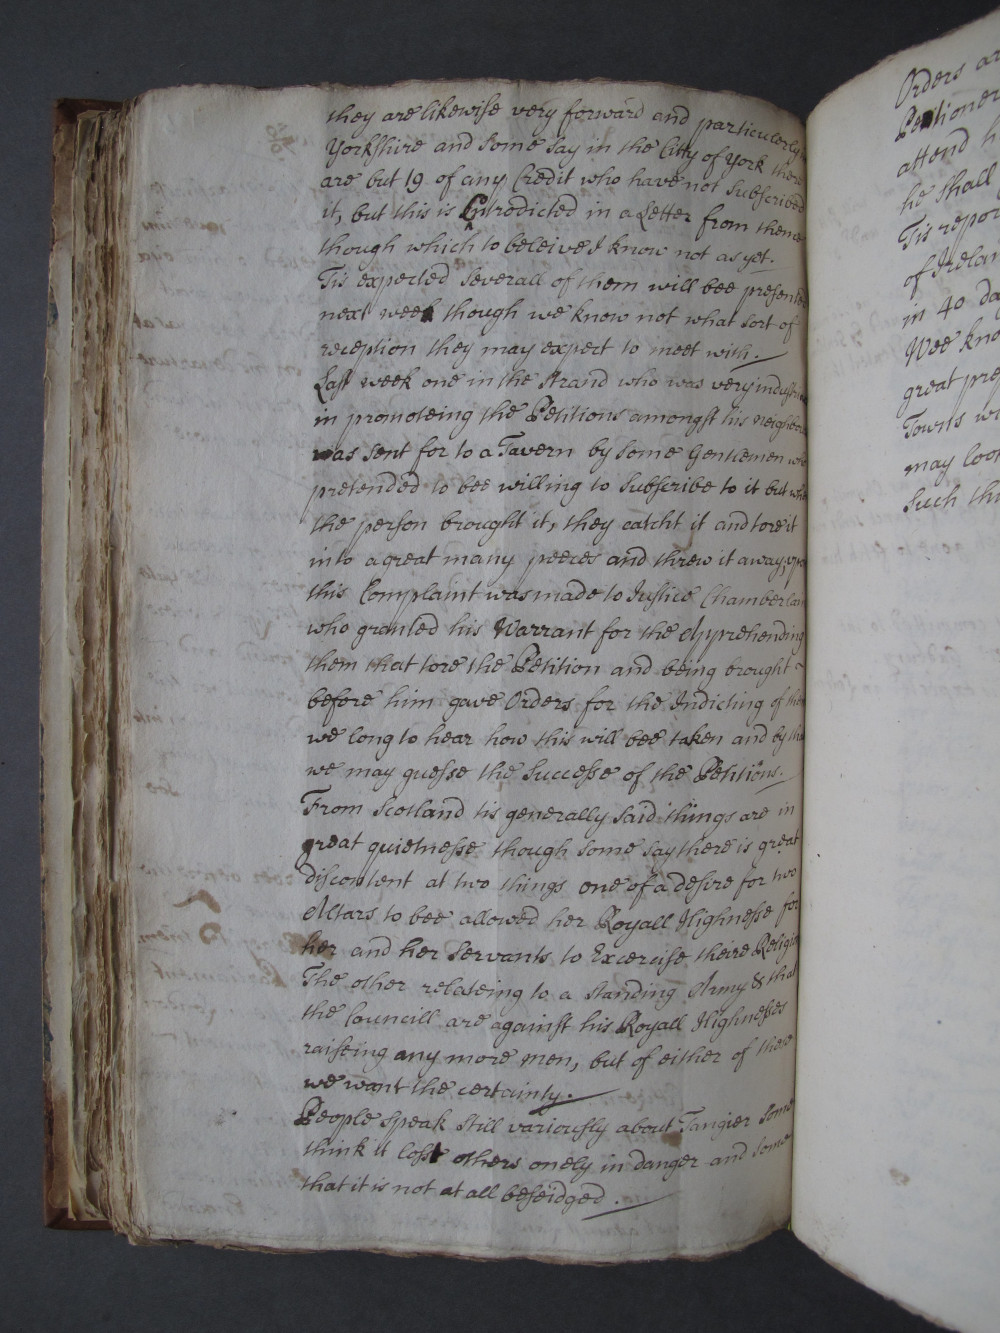 they are likewise very forward and particularly
Yorkshire and some say in the Citty of York there
are but 19 of any Credit who have not Subscribed
it, but this is Controdicted in a Letter from thence
though which to beleive I know not as yet.
Tis expected severall of them will bee presented
next week though we know not what sort of
reception they may expect to meet with.
Last week one in the Strand who was very industri
in promoteing the Petitions amongst his neighbo
was sent for to a Tavern by some Gentlemen who
pretended to bee willing to subscribe to it but when
the person brought it, they catcht it and tore it
into a great many peeces and threw it away, upo
this Complaint was made to Justice Chamberlain
who granted his Warrant for the Apprehending
them that tore the Petition and being brought
before him gave Orders for the Indicting of them
we long to hear how this will bee taken and by tha
we may guesse the Successe of the Petitions.
From Scotland tis generally said things are in
great quietnesse though some say there is great
discontent at two things one of a desire for two
Altars to bee allowed her Royall Highnesse for
her and her servants to Excercise theire Religion
The other relateing to a standing Army & that
the Councill are against his Royall Highnesses
raiseing any more men, but of either of these
we want the certainty.
People speak still variously about Tangier some
think it lost others onely in danger and some
that it is not at all beseidged.
Orders ar
Petitioner
attend h
he shall
Tis repor
of Irelan
in 40 da
Wee kno
great pre
Towns wi
may loo
such th